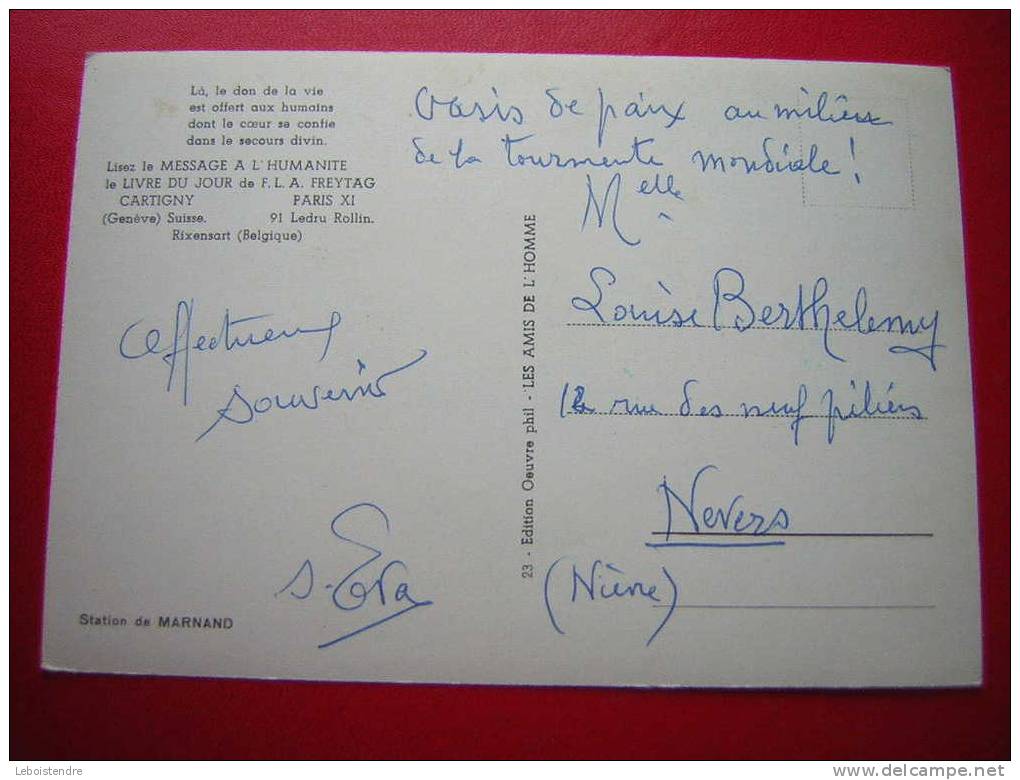 Là, le don de la vie
est offert aux humains
dont le cœur se confie
dans le secours divin.
Lisez le MESSAGE A L'HUMANITE
le LIVRE DU JOUR de F. L. A. FREYTAG
CARTIGNY PARIS XI
(Genève) Suisse. 91 Ledru Rollin.
Rixensart (Belgique)
Oasis de paix au milieu
de la tourmente mondiale !
Melle
Louise Berthelemy
12 rue des neuf piliers
Nevers
(Nièvre)
Affectueux
souvenir
s. Eva
Station de MARNAND
23 - Edition Oeuvre phil - LES AMIS DE L'HOMME
Leboistendre
www.delcampe.net